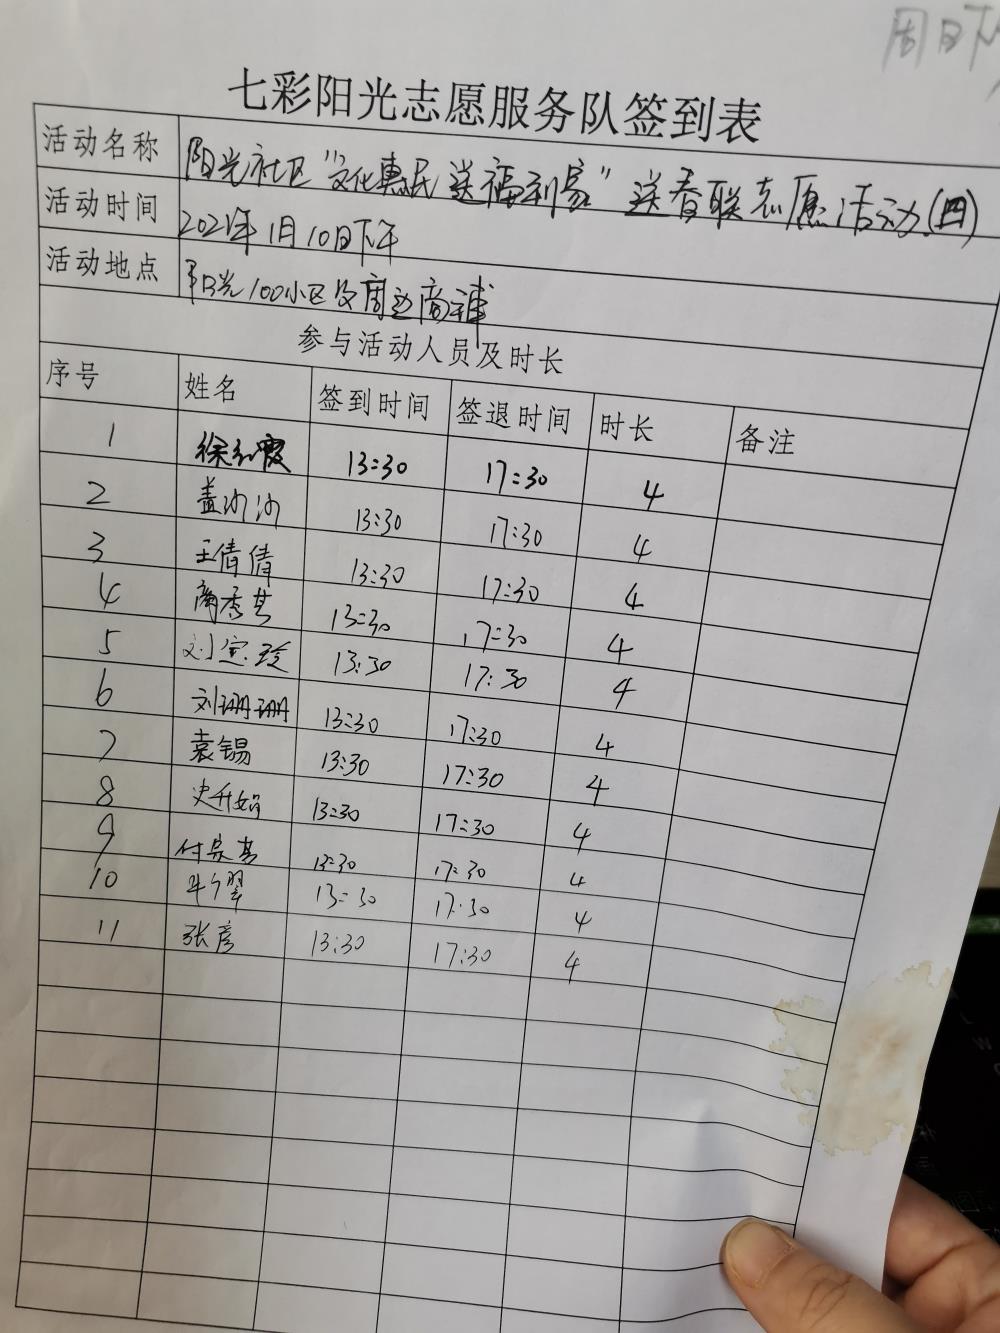 周日下
七彩阳光志愿服务队签到表
活动名称 阳光社区“文化惠民 送福到家”送春联志愿活动(四)
活动时间 2021年1月10日下午
活动地点 阳光100小区及周边商铺
参与活动人员及时长
序号 姓名 签到时间 签退时间 时长 备注
1 徐红霞 13:30 17:30 4
2 盖沙沙 13:30 17:30 4
3 王倩倩 13:30 17:30 4
4 商秀其 13:30 17:30 4
5 刘宝玲 13:30 17:30 4
6 刘珊珊 13:30 17:30 4
7 袁锡 13:30 17:30 4
8 史升娟 13:30 17:30 4
9 付宗其 13:30 17:30 4
10 13:30 17:30 4
11 张彦 13:30 17:30 4